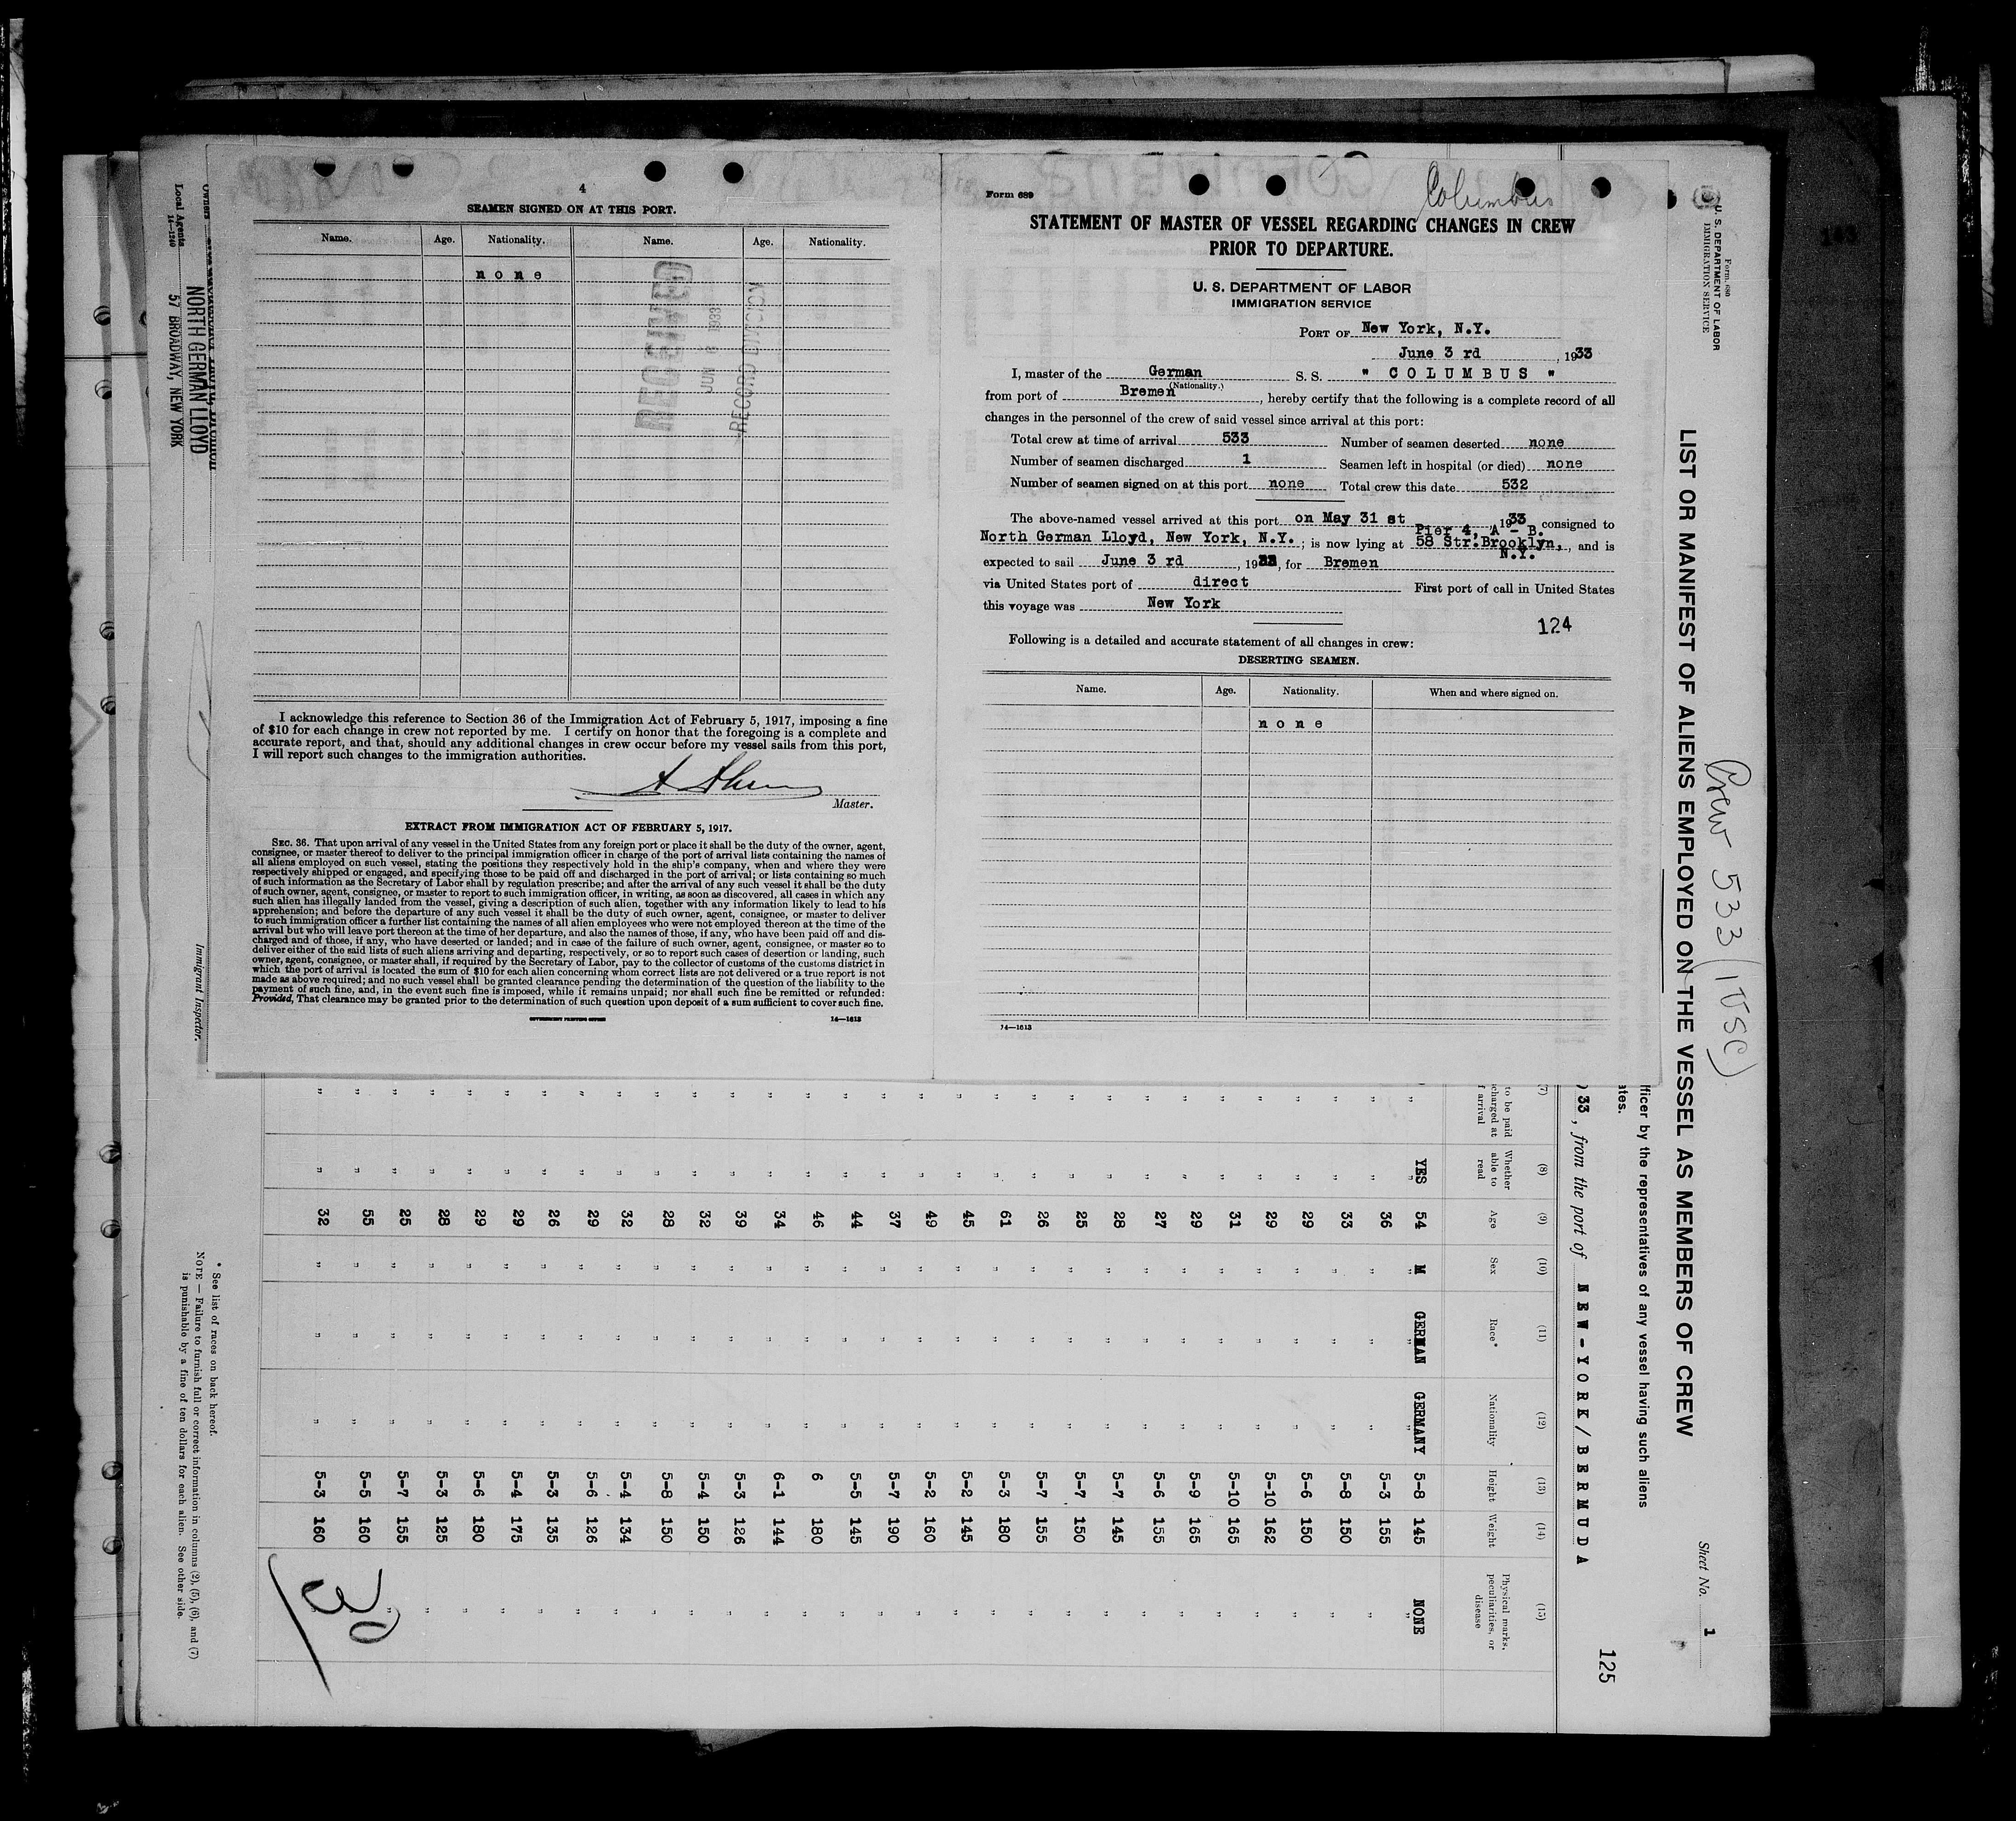 4
SEAMEN SIGNED ON AT THIS PORT.
Name. Age. Nationality. Name. Age. Nationality.
none
RECEIVED
JUN 6 1933
RECORD DIVISION
I acknowledge this reference to Section 36 of the Immigration Act of February 5, 1917, imposing a fine
of $10 for each change in crew not reported by me. I certify on honor that the foregoing is a complete and
accurate report, and that, should any additional changes in crew occur before my vessel sails from this port,
I will report such changes to the immigration authorities.
Master.
EXTRACT FROM IMMIGRATION ACT OF FEBRUARY 5, 1917.
SEC. 36. That upon arrival of any vessel in the United States from any foreign port or place it shall be the duty of the owner, agent,
consignee, or master thereof to deliver to the principal immigration officer in charge of the port of arrival lists containing the names of
all aliens employed on such vessel, stating the positions they respectively hold in the ship's company, when and where they were
respectively shipped or engaged, and specifying those to be paid off and discharged in the port of arrival; or lists containing so much
of such information as the Secretary of Labor shall by regulation prescribe; and after the arrival of any such vessel it shall be the duty
of such owner, agent, consignee, or master to report to such immigration officer, in writing, as soon as discovered, all cases in which any
such alien has illegally landed from the vessel, giving a description of such alien, together with any information likely to lead to his
apprehension; and before the departure of any such vessel it shall be the duty of such owner, agent, consignee, or master to deliver
to such immigration officer a further list containing the names of all alien employees who were not employed thereon at the time of the
arrival but who will leave port thereon at the time of her departure, and also the names of those, if any, who have been paid off and dis-
charged and of those, if any, who have deserted or landed; and in case of the failure of such owner, agent, consignee, or master so to
deliver either of the said lists of such aliens arriving and departing, respectively, or so to report such cases of desertion or landing, such
owner, agent, consignee, or master shall, if required by the Secretary of Labor, pay to the collector of customs of the customs district in
which the port of arrival is located the sum of $10 for each alien concerning whom correct lists are not delivered or a true report is not
made as above required; and no such vessel shall be granted clearance pending the determination of the question of the liability to the
payment of such fine, and, in the event such fine is imposed, while it remains unpaid; nor shall such fine be remitted or refunded:
Provided, That clearance may be granted prior to the determination of such question upon deposit of a sum sufficient to cover such fine.
GOVERNMENT PRINTING OFFICE 14—1613
Form 689
Columbus
STATEMENT OF MASTER OF VESSEL REGARDING CHANGES IN CREW
PRIOR TO DEPARTURE.
U. S. DEPARTMENT OF LABOR
IMMIGRATION SERVICE
PORT OF New York, N.Y.
June 3 rd , 1933
I, master of the German S. S. " COLUMBUS "
(Nationality.)
from port of Bremen , hereby certify that the following is a complete record of all
changes in the personnel of the crew of said vessel since arrival at this port:
Total crew at time of arrival 533 Number of seamen deserted none
Number of seamen discharged 1 Seamen left in hospital (or died) none
Number of seamen signed on at this port none Total crew this date 532
The above-named vessel arrived at this port on May 31 st , 1933 consigned to
Pier 4, A - B.
North German Lloyd, New York, N.Y. ; is now lying at 58 Str.Brooklyn, , and is
N.Y.
expected to sail June 3 rd , 1933, for Bremen
via United States port of direct First port of call in United States
this voyage was New York
124
Following is a detailed and accurate statement of all changes in crew:
DESERTING SEAMEN.
Name. Age. Nationality. When and where signed on.
none
14—1613
Form 680
U. S. DEPARTMENT OF LABOR
IMMIGRATION SERVICE
Crew 533 (1 USC)
Sheet No. 1
LIST OR MANIFEST OF ALIENS EMPLOYED ON THE VESSEL AS MEMBERS OF CREW
fficer by the representatives of any vessel having such aliens
ates.
125
33, from the port of NEW-YORK/BERMUDA
(7) (8) (9) (10) (11) (12) (13) (14) (15)
to be paid
charged at
arrival
Whether able to read Age Sex Race* Nationality Height Weight Physical marks, peculiarities, or disease
" YES 54 M GERMAN GERMANY 5-8 145 NONE
" " 36 " " " 5-3 155 "
" " 33 " " " 5-8 150 "
" " 29 " " " 5-6 150 "
" " 29 " " " 5-10 162 "
" " 31 " " " 5-10 165 "
" " 29 " " " 5-9 165 "
" " 27 " " " 5-6 155 "
" " 28 " " " 5-7 145 "
" " 25 " " " 5-7 150 "
" " 26 " " " 5-7 155 "
" " 61 " " " 5-3 180 "
" " 45 " " " 5-2 145 "
" " 49 " " " 5-2 160 "
" " 37 " " " 5-7 190 "
" " 44 " " " 5-5 145 "
" " 46 " " " 6 180 "
" " 34 " " " 6-1 144 "
" " 39 " " " 5-3 126 "
" " 32 " " " 5-4 150 "
" " 28 " " " 5-8 150 "
" " 32 " " " 5-4 134 "
" " 29 " " " 5-6 126 "
" " 26 " " " 5-3 135 "
" " 29 " " " 5-4 175 "
" " 29 " " " 5-6 180 "
" " 28 " " " 5-3 125 "
" " 25 " " " 5-7 155 "
" " 55 " " " 5-5 160
" " 32 " " " 5-3 160
30
* See list of races on back hereof.
NOTE — Failure to furnish full or correct information in columns (2), (5), (6), and (7)
is punishable by a fine of ten dollars for each alien. See other side.
Owners
NORTH GERMAN LLOYD
Local Agents 57 BROADWAY, NEW YORK
14—1240
Immigrant Inspector.